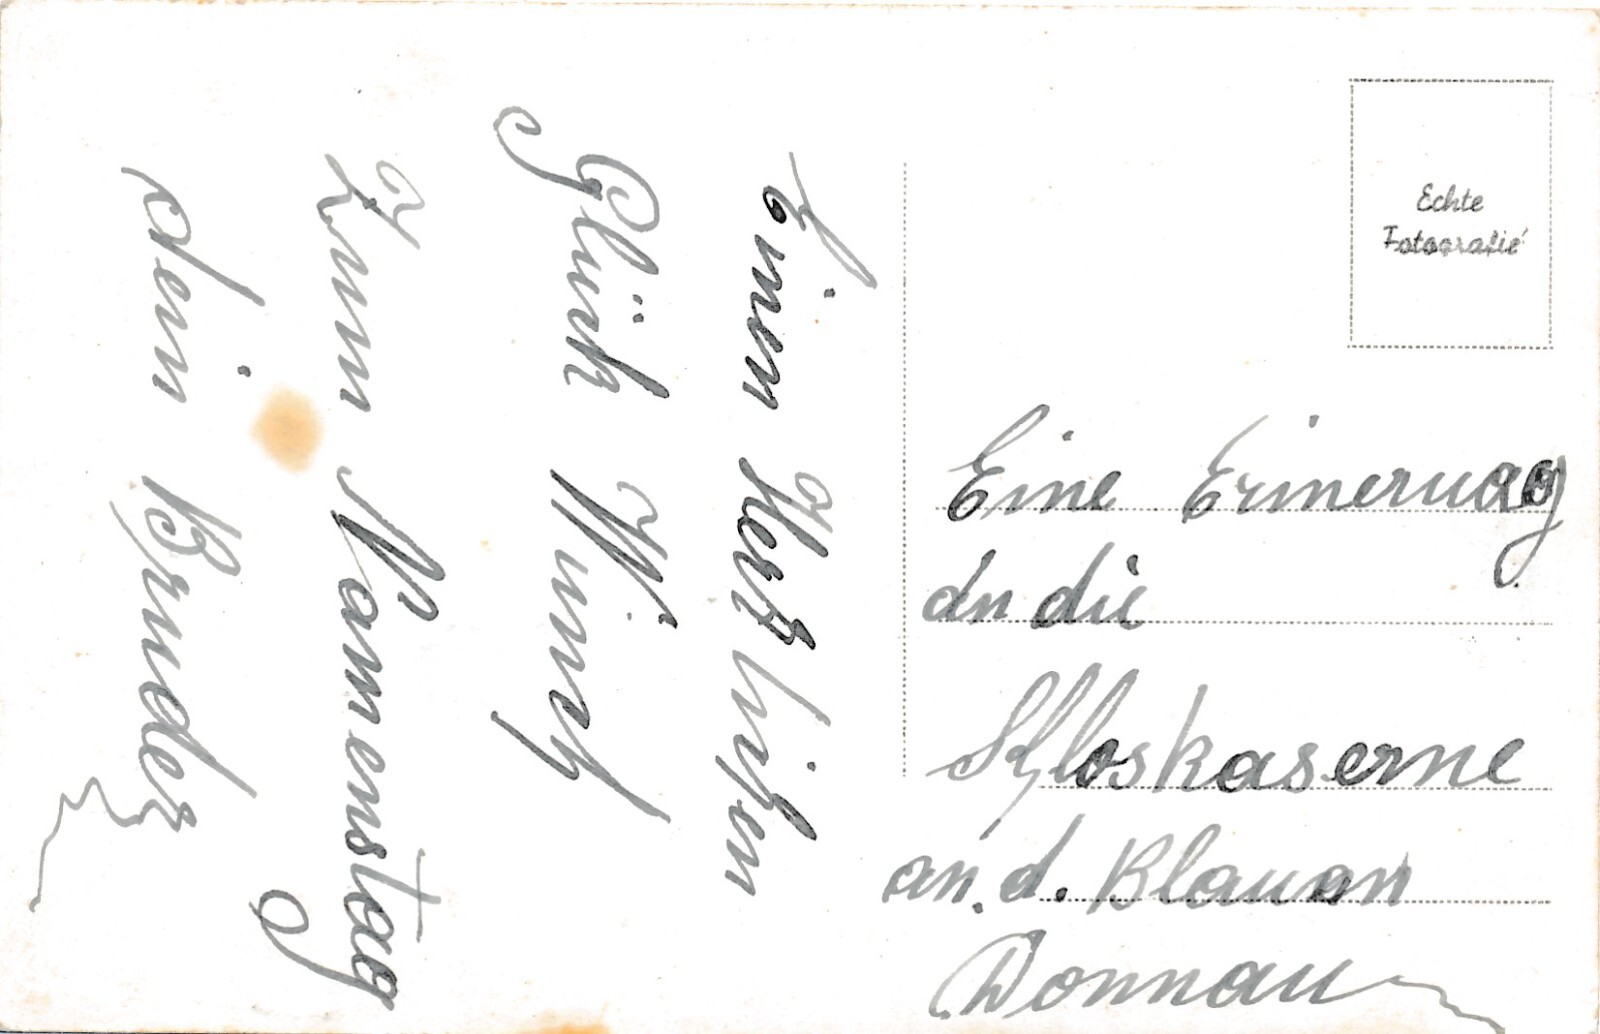 Einen Hertzlichen
Glück Wunsch
Zum Namenstag
dein Bruder
Echte
Fotografie
Eine Erinerung
an die
Schloskaserne
an. d. Blauen
Donnau